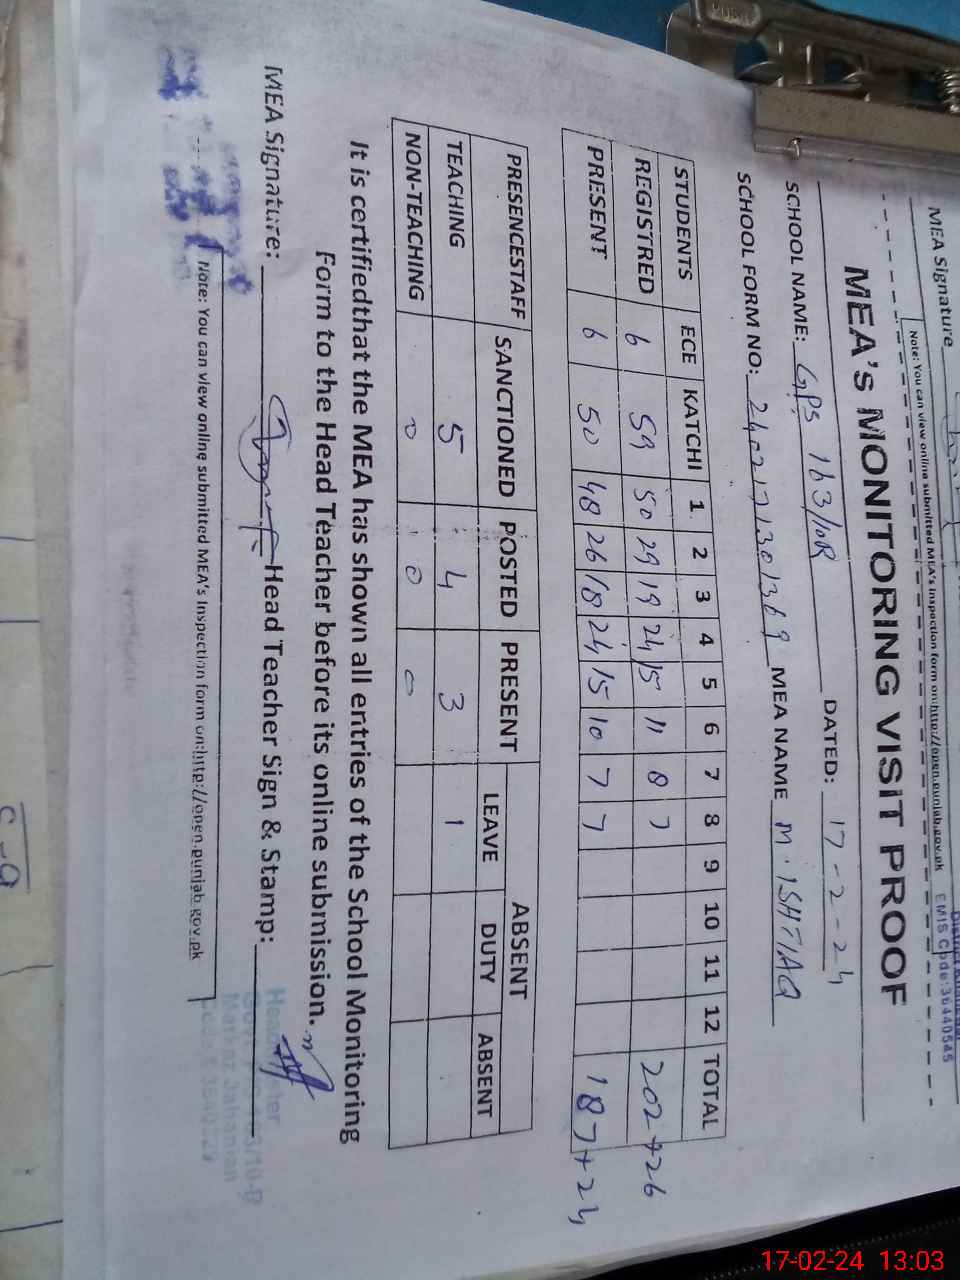 MEA Signature
Note: You can view online submitted MEA's Inspection form on:http://open.punjab.gov.pk
EMIS Code:36440545
MEA'S MONITORING VISIT PROOF
SCHOOL NAME: GPS 163/10R DATED: 17-2-24
SCHOOL FORM NO: MEA NAME M. ISHTIAQ
STUDENTS ECE KATCHI 1 2 3 4 5 6 7 8 9 10 11 12 TOTAL
REGISTRED 6 59 50 29 19 24 15 11 8 7 202+26
PRESENT 6 50 48 26 18 24 15 10 7 7 187+24
PRESENCESTAFF SANCTIONED POSTED PRESENT ABSENT
LEAVE DUTY ABSENT
TEACHING 5 4 3 1
NON-TEACHING 0 0 0
It is certifiedthat the MEA has shown all entries of the School Monitoring
Form to the Head Teacher before its online submission.
MEA Signature: Head Teacher Sign & Stamp:
Note: You can view online submitted MEA's Inspection form on:http://open.punjab.gov.pk
Markaz Jahanian
17-02-24 13:03